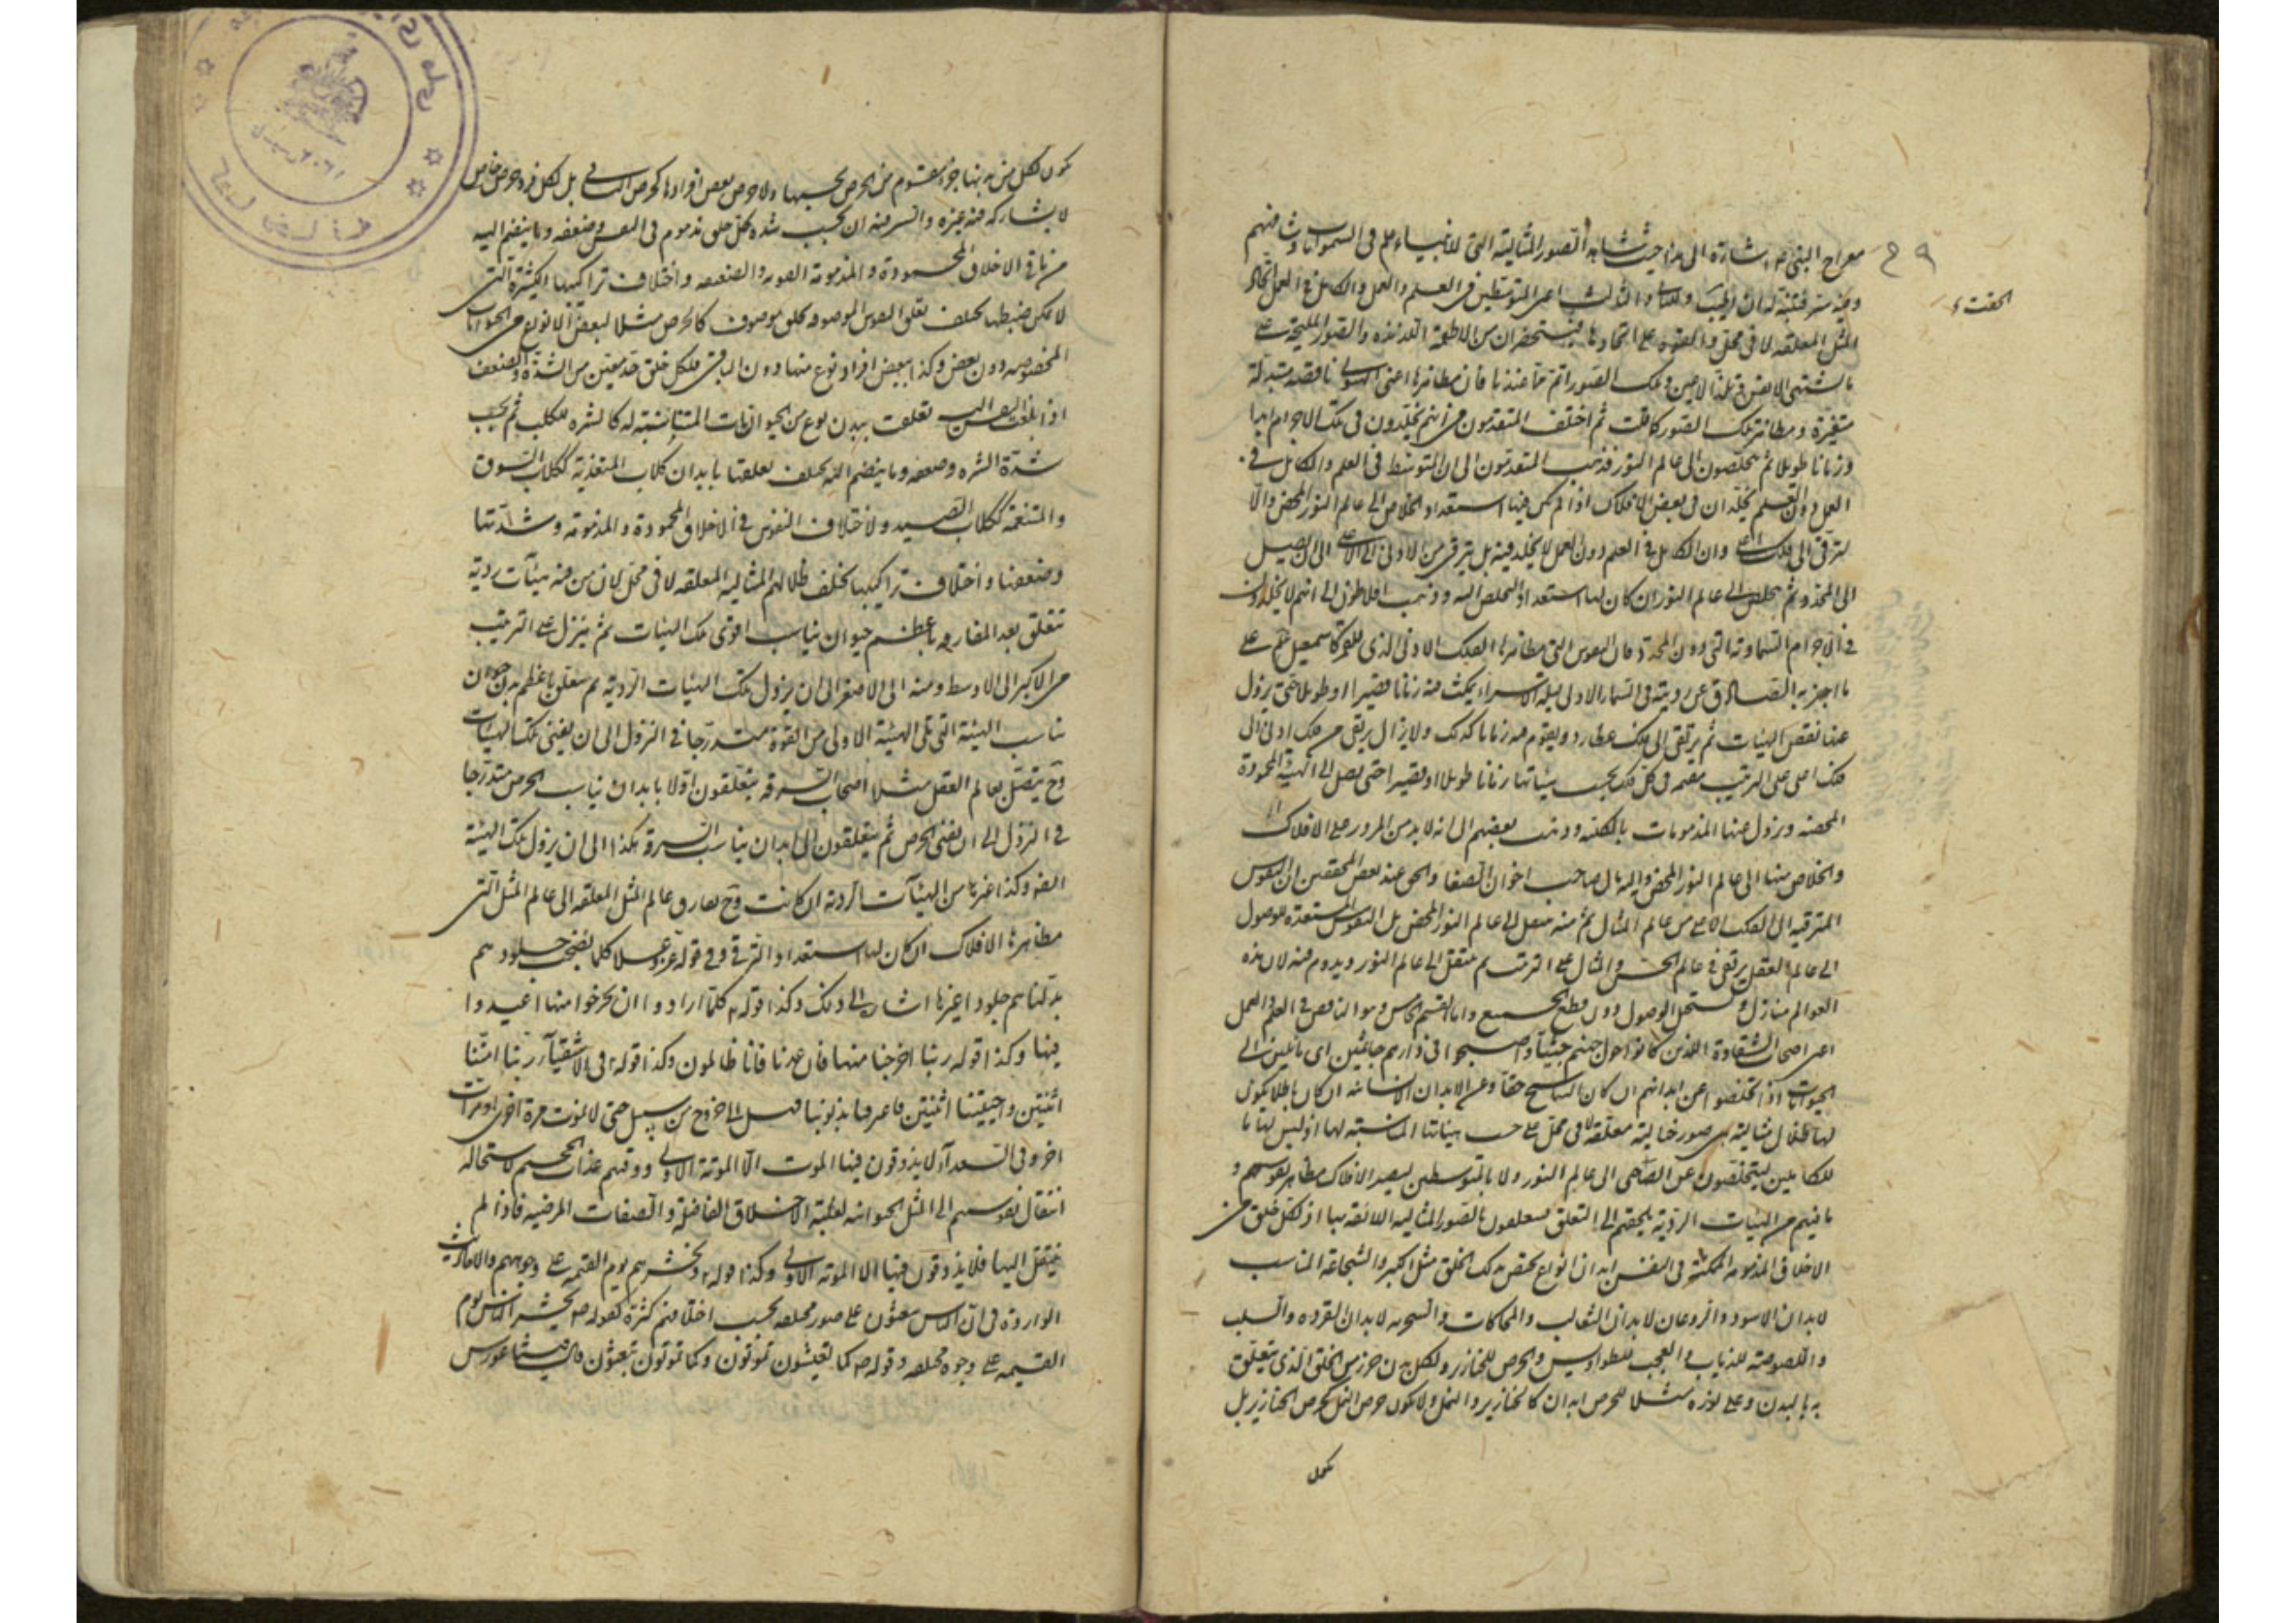 معراج النبی ص اشارة الی هذا حیث شاهد الصور المثالیة التی للانبیاء علم فی السموات وشافههم
۴۹
المثل المعلقه لا فی محل ولهم قوة علی ایجادها فیستحضران من الاطعمة اللذیذه والصور الملیحة علی
ما تشتهی الانفس وتلذ الاعین وتلک الصور اتم مما عندنا فان مظاهرها اعنی الهیولی ناقصه متبدلة
متغیرة ومظاهر تلک الصور کاملة ثم اختلف المتقدمون فی انهم یخلدون فی تلک الاجرام ابدا
او زمانا طویلا ثم یتخلصون الی عالم النور فذهب المتقدمون الی ان المتوسط فی العلم والکامل فی
العمل دون العلم یخلدان فی بعض الافلاک اذا لم یکن فیها استعداد الخلاص الی عالم النور المحض والا
لترقی الی فلک اعلی وان الکامل فی العلم دون العمل لا یخلد فیه بل یترقی من الادنی الی الاعلی الی ان یصل
الی المحدد ثم یتخلص الی عالم النور ان کان لها استعداد التخلص الیه وذهب افلاطون الی انهم لا یخلدون
فی الاجرام السماویة التی دون المحدد فان النفوس التی مظاهرها الفلک الادنی الذی للقمر کاسمعیل علم علی
ما اخبر به الصادق عن رویته فی السماء الاولی لیلة الاسراء یمکث فیه زمانا قصیرا او طویلا حتی یزول
عنها نقص الهیئات ثم یرتقی الی فلک عطارد ویقیم فیه زمانا کذلک ولا یزال یرتقی من فلک ادنی الی
فلک اعلی علی الترتیب مقیمة فی کل فلک بحسب هیئاتها زمانا طویلا او قصیرا حتی یصل الی الهیئة المحمودة
المحضه ویزول عنها المذمومات بالکلیه وذهب بعضهم الی انه لا بد من المرور علی الافلاک
والخلاص منها الی عالم النور المحض والیه مال صاحب اخوان الصفا والحق عند بعض المحققین ان النفوس
المترقیه الی الفلک الاعلی من عالم المثال ثم منه تنتقل الی عالم النور المحض بل النفوس المستعدة للوصول
الی عالم العقل یرتقی فی عالم الحس والمثال علی الترتیب ثم ینتقل الی عالم النور ویدوم فیه لان هذه
العوالم منازل ویستحیل الوصول دون قطع الجمیع واما القسم الخامس وهو الناقص فی العلم والعمل
اعنی اصحاب الشقاوة الذین کانوا حول جهنم جثیا واصبحوا فی دارهم جاثمین ای مائلین الی
الحیوانات اذا تخلصوا عن ابدانهم ان کان التناسخ حقا وعن الابدان الانسانیة ان کان باطلا یکون
لها ظلال مثالیة هی صور خیالیة معلقة لا فی محل علی حسب هیئاتها المناسبة لها اذ لیس لها ما
للکاملین لیتخلصون عن الصیاصی الی عالم النور ولا ما للمتوسطین لیصیر الافلاک مظاهر نفوسهم و
ما فیهم من الهیئات الردیة یلجئهم الی التعلق فیتعلقون بالصور المثالیه اللائقه بها اذ لکل خلق من
الاخلاق المذمومة المتمکنة فی النفس ابدان انواع یختص بذلک الخلق مثل الکبر والشجاعة المناسب
لابدان الاسود والروغان لابدان الثعالب والمحاکات والسخریه لابدان القرده والسلب
واللصوصیة للذیاب والعجب للطواویس والحرص للخنازیر ولکل بدن جزء من الخلق الذی یتعلق
به بالبدن وعلی لوزه مثلا للحرص ابدان کالخنازیر والنمل ولا یکون حرص النمل کحرص الخنازیر بل
یکون
یکون لکل من هذینها جزء مقسوم من الحرص بحسبها ولا حرص بعض افرادها کحرص الباقی بل لکل فرد حرص خاص
لا یشارکه فیه غیره والسر فیه ان بحسب شدة کل خلق مذموم فی النفس وضعفه وما ینضم الیه
من باقی الاخلاق المحمودة والمذمومة القویه والضعیفه واختلاف تراکیبها الکثیرة التی
لا یمکن ضبطها یختلف تعلق النفوس الموصوفه بخلق موصوف کالحرص مثلا لبعض الانواع من الحیوانات
المخصوصه دون بعض وکذا ببعض افراد نوع منها دون الباقی فلکل خلق حد معین من الشدة والضعف
اذا بلغت النفس الیه تعلقت ببدن نوع من الحیوانات المناسبة له کالشره للکلب ثم بحسب
شدة الشره وضعفه وما ینضم الیه یختلف تعلقها بابدان کلاب المتغذیة ککلاب السوق
والمتنعمة ککلاب الصید ولاختلاف النفوس فی الاخلاق المحمودة والمذمومة وشدتها
وضعفها واختلاف تراکیبها یختلف ظلالهم المثالیه المعلقه لا فی محل لان من فیه هیئات ردیة
تتعلق بعد المفارقه باعظم حیوان یناسب اقوی تلک الهیئات ثم ینزل علی الترتیب
من الاکبر الی الاوسط ومنه الی الاصغر الی ان یزول تلک الهیئات الردیة ثم یتعلق باعظم بدن حیوان
یناسب الهیئة التی تلی الهیئة الاولی من القوة متدرجا فی النزول الی ان یفنی تلک الهیئات
وح یتصل بعالم العقل مثلا اصحاب السرقه یتعلقون اولا بابدان یناسب الحرص متدرجا
فی النزول الی ان یفنی الحرص ثم یتعلقون الی ابدان یناسب السرقه هکذا الی ان یزول تلک الهیئة
ایضه وکذا غیرها من الهیئات الردیة ان کانت وح یفارق عالم المثل المعلقه الی عالم المثل التی
مظاهرها الافلاک ان کان لها استعداد الترقی وفی قوله عز وعلا کلما نضجت جلودهم
بدلناهم جلودا غیرها اشارة الی ذلک وکذا قوله کلما ارادوا ان یخرجوا منها اعیدوا
فیها وکذا قوله ربنا اخرجنا منها فان عدنا فانا ظالمون وکذا قوله فی الاشقیاء ربنا امتنا
اثنتین واحییتنا اثنتین فاعترفنا بذنوبنا فهل الی خروج من سبیل حتی لا نموت مرة اخری او مرات
اخر وفی السعداء لا یذوقون فیها الموت الا الموتة الاولی ووقیهم عذاب الجحیم لاستحاله
انتقال نفوسهم الی المثل الحیوانیه لغلبة الاخلاق الفاضلة والصفات المرضیه فاذا لم
ینتقل الیها فلا یذوقون فیها الا الموته الاولی وکذا قوله ونحشرهم یوم القیمه علی وجوههم والاحادیث
الواردة فی ان الناس یبعثون علی صور مختلفه بحسب اخلاقهم کثیرة کقوله ص یحشر الناس یوم
القیمه علی وجوه مختلفه وقوله ص کما تعیشون تموتون وکما تموتون تبعثون قال فیثاغورس